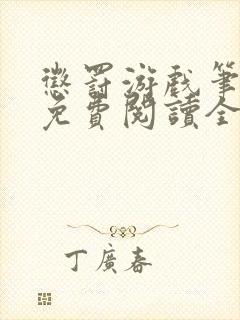 懲罰游戲筆
免費閱讀全
丁廣春